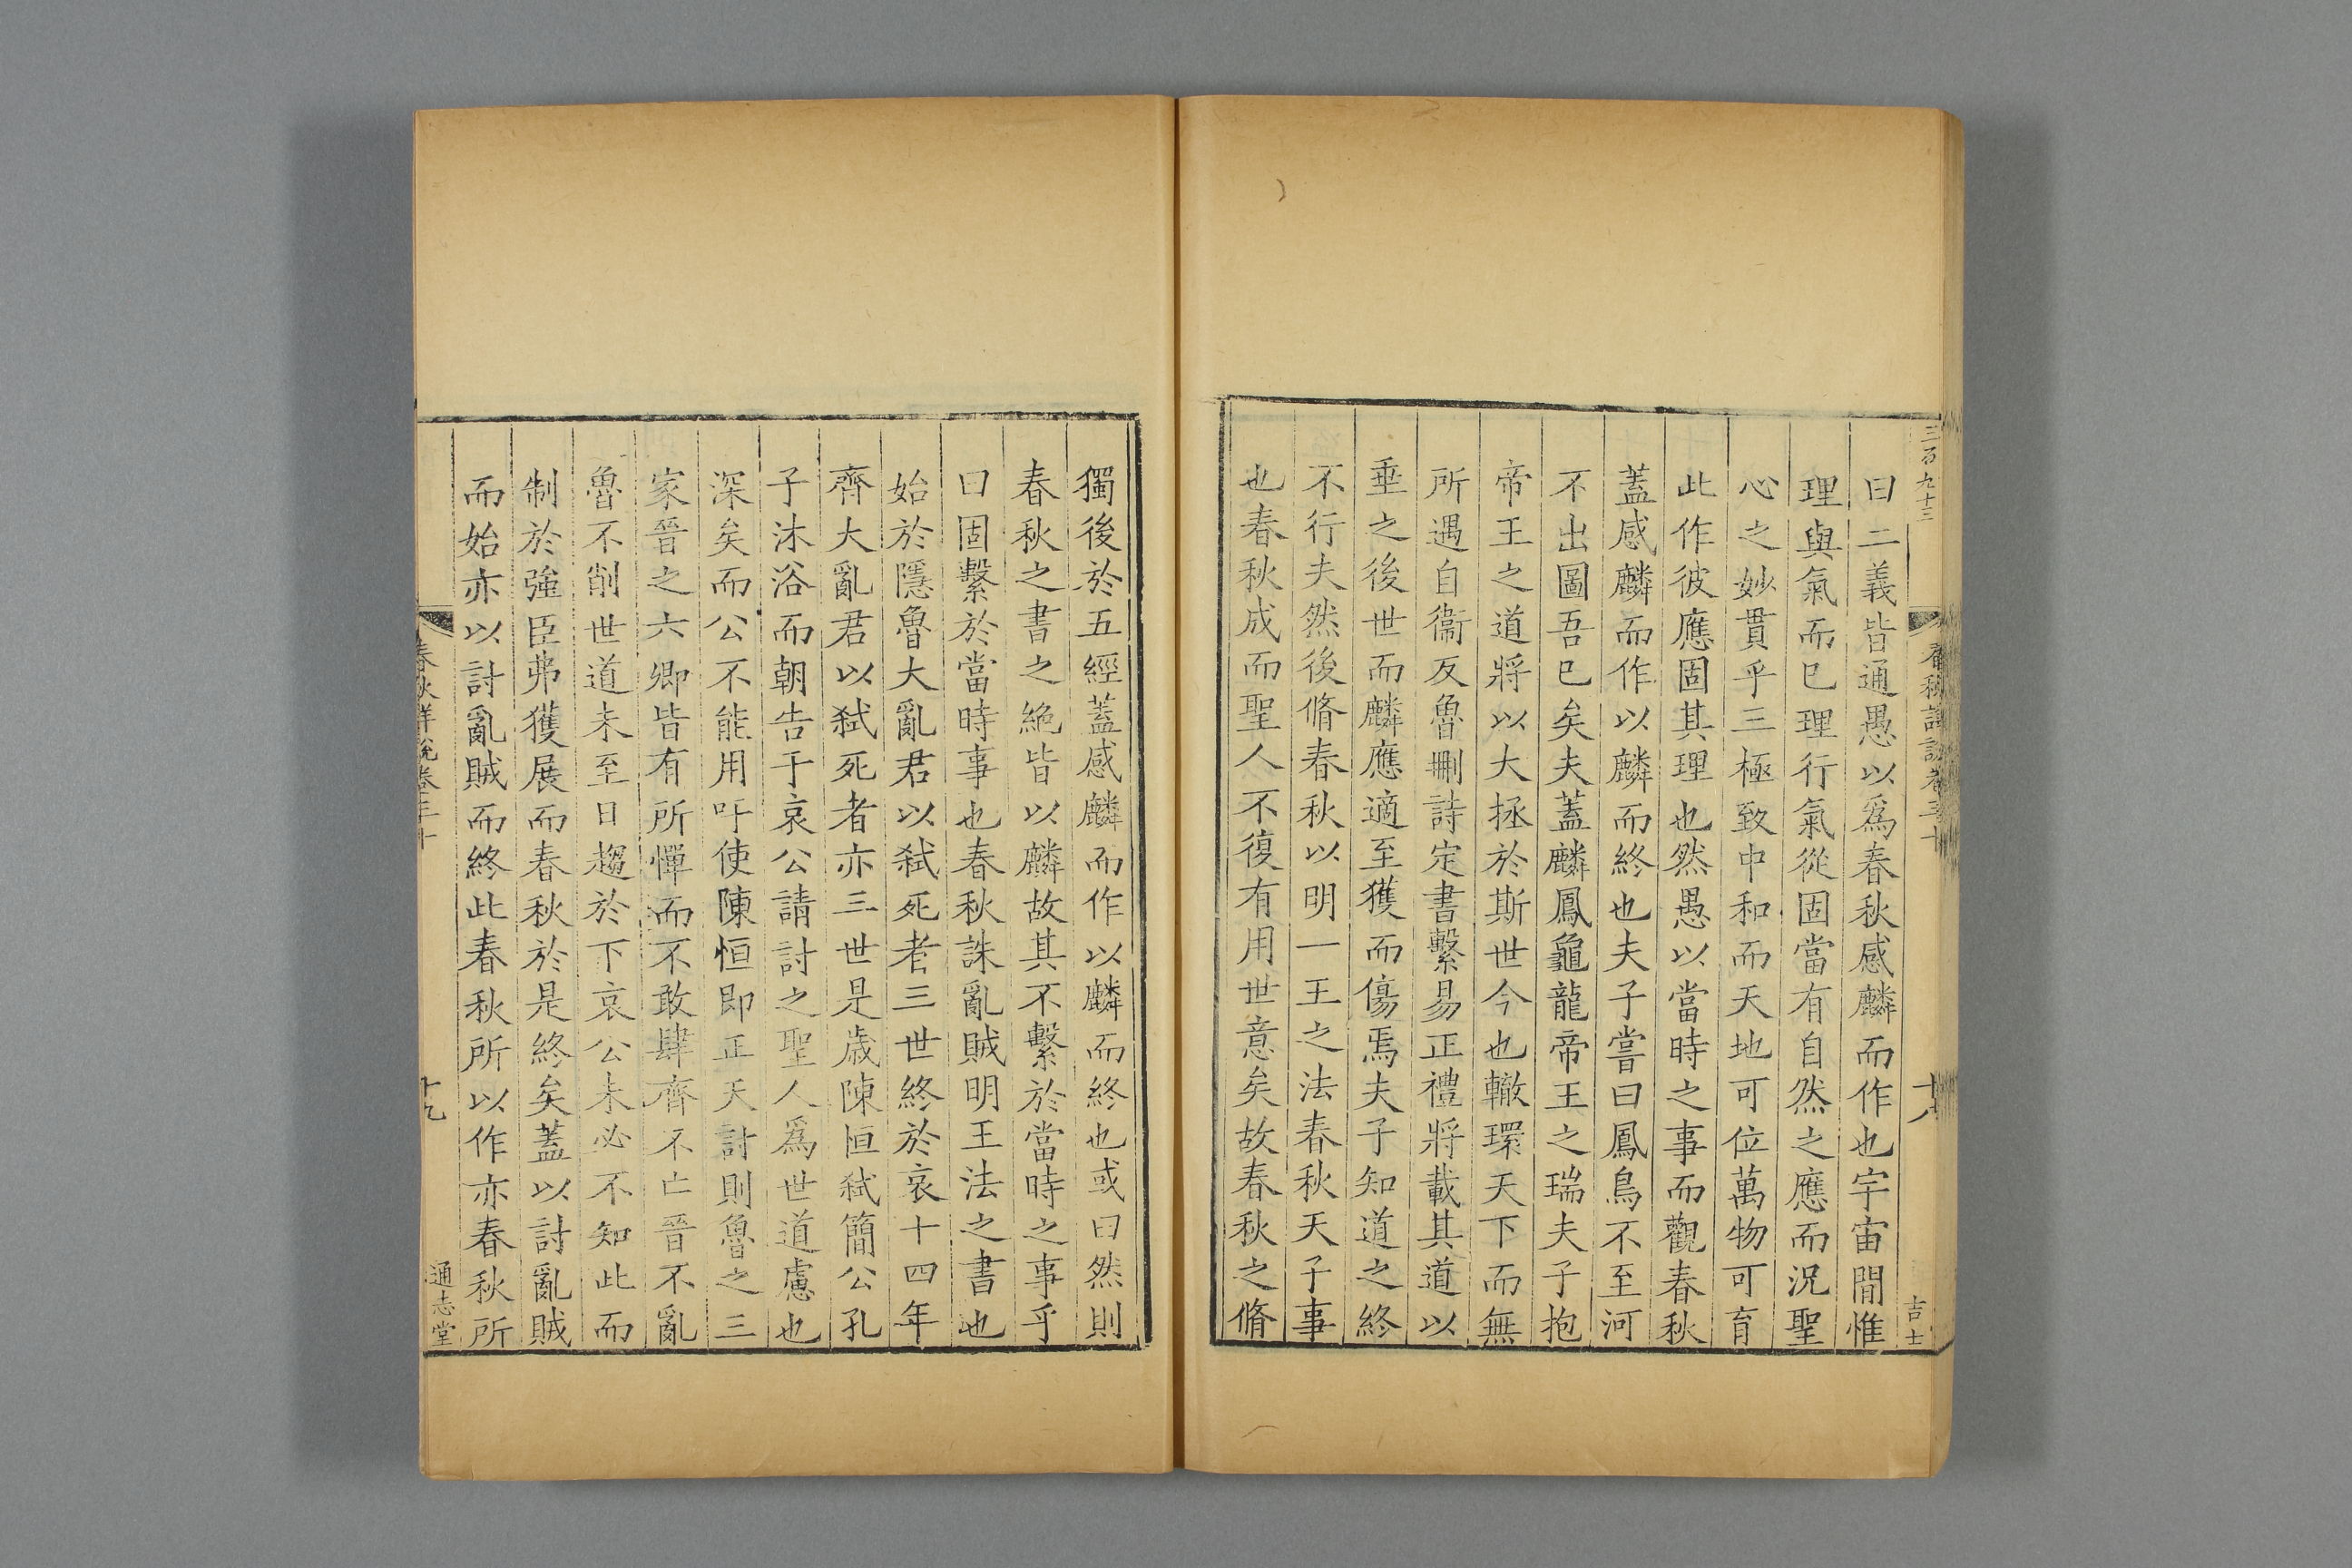 三百九十三
春秋詳說卷三十
十八
吉士
曰二義皆通愚以爲春秋感麟而作也宇宙間惟
理與氣而已理行氣從固當有自然之應而況聖
心之妙貫乎三極致中和而天地可位萬物可育
此作彼應固其理也然愚以當時之事而觀春秋
蓋感麟而作以麟而終也夫子嘗曰鳳鳥不至河
不出圖吾已矣夫蓋麟鳳龜龍帝王之瑞夫子抱
帝王之道將以大拯於斯世今也轍環天下而無
所遇自衞反魯刪詩定書繫易正禮將載其道以
垂之後世而麟應適至獲而傷焉夫子知道之終
不行夫然後脩春秋以明一王之法春秋天子事
也春秋成而聖人不復有用世意矣故春秋之脩
獨後於五經蓋感麟而作以麟而終也或曰然則
春秋之書之絶皆以麟故其不繫於當時之事乎
曰固繫於當時事也春秋誅亂賊明王法之書也
始於隱魯大亂君以弒死者三世終於哀十四年
齊大亂君以弒死者亦三世是歲陳恒弒簡公孔
子沐浴而朝告于哀公請討之聖人爲世道慮也
深矣而公不能用吁使陳恒即正天討則魯之三
家晉之六卿皆有所憚而不敢肆齊不亡晉不亂
魯不削世道未至日趨於下哀公未必不知此而
制於強臣弗獲展而春秋於是終矣蓋以討亂賊
而始亦以討亂賊而終此春秋所以作亦春秋所
春秋詳說卷三十
十九
通志堂